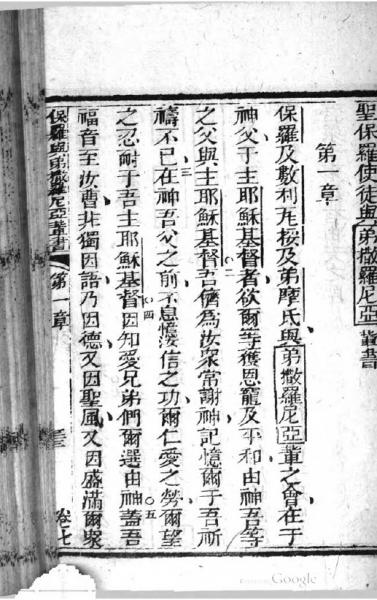 聖保羅使徒與弟撒羅尼亞輩書
第一章
保羅及數利瓦挼及弟摩氐與弟撒羅尼亞輩之會在于
神父于主耶穌基督者欲爾等獲恩寵及平和由神吾等
之父與主耶穌基督○二吾儕為汝眾常謝神記憶爾于吾所
禱不已○三在神吾父之前不息憶汝信之功爾仁愛之勞爾望
之忍耐于吾主耶穌基督○四因知愛兄弟們爾選由神○五蓋吾
福音至汝曹非獨因語乃因德又因聖風又因盛滿爾眾
保羅與弟撒羅尼亞輩書 第一章 三 卷七
Google